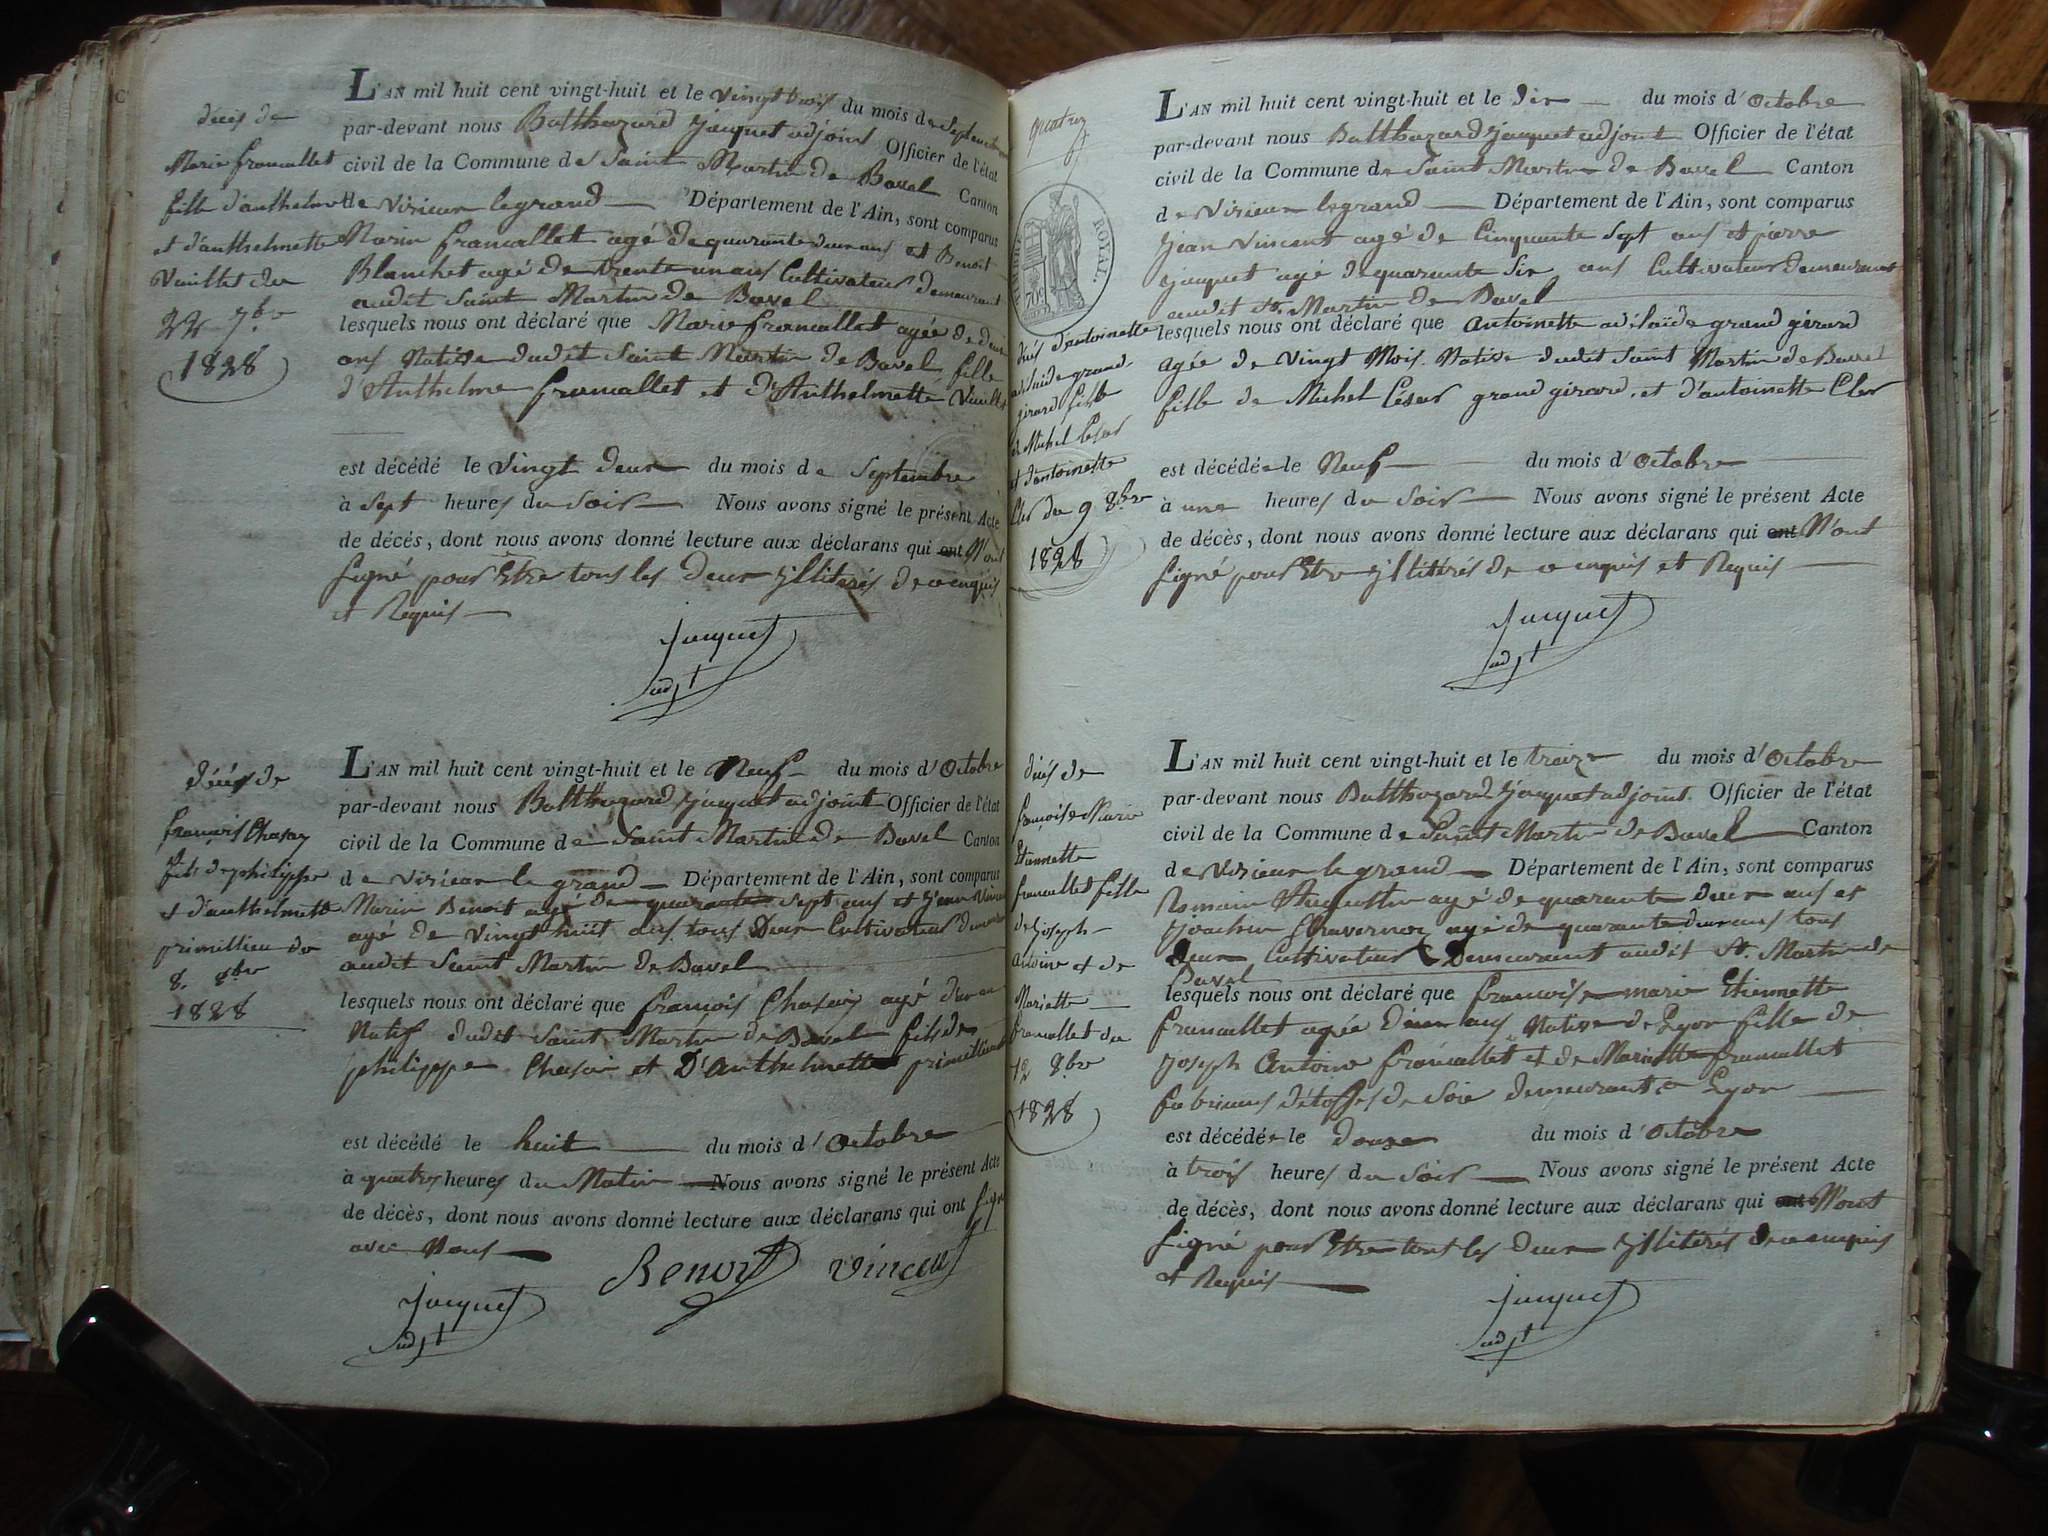 décès de
Marie francallet
fille d'anthelme
et d'anthelmette
Vuillet du
22 7.bre
1828
L'AN mil huit cent vingt-huit et le vingt trois du mois de Septembre
par-devant nous Balthazard Jacquet adjoint Officier de l'état
civil de la Commune de Saint Martin de Bavel Canton
de Virieux legrand Département de l'Ain, sont comparus
Marin francallet agé de quarante deux ans et Benoit
Blanchet agé de trente un ans Cultivateurs demeurant
audit Saint Martin de Bavel
lesquels nous ont déclaré que Marie francallet agée de deux
ans Native dudit Saint Martin de Bavel fille
d'Anthelme francallet et d'Anthelmette Vuillet
est décédé le Vingt deux du mois de Septembre
à Sept heures du Soir Nous avons signé le présent Acte
de décés, dont nous avons donné lecture aux déclarans qui ont N'ont
Signé pour Etre tous les Deux Illiterés de ce enquis
et Requis
Jacquet
adjt
décès de
françois Chasay
fils de philippe
et d'anthelmette
primillieu du
8. 8bre
1828
L'AN mil huit cent vingt-huit et le Neuf du mois d'Octobre
par-devant nous Balthazard Jacquet adjoint Officier de l'état
civil de la Commune de Saint Martin de Bavel Canton
de Virieux le grand Département de l'Ain, sont comparus
Marin Benoit agé de quarante Sept ans et Jean Vincent
agé de Vingt huit ans tous Deux Cultivateurs
audit Saint Martin de Bavel
lesquels nous ont déclaré que françois Chasay agé d'un an
Natif dudit Saint Martin de Bavel fils de
philippe Chasay et D'Anthelmette primillieu
est décédé le huit du mois d'Octobre
à quatre heures du Matin Nous avons signé le présent Acte
de décès, dont nous avons donné lecture aux déclarans qui ont Signé
avec Nous
Benoit Vincent
Jacquet
adjt
quatorz
TIMBRE ROYAL.
70c
décès d'antoinette
adelaide grand
girard fille
de Michel Cesar
et d'antoinette
Cler du 9 8bre
1828
L'AN mil huit cent vingt-huit et le dix du mois d'Octobre
par-devant nous Balthazard Jacquet adjoint Officier de l'état
civil de la Commune de Saint Martin de Bavel Canton
de Virieux legrand Département de l'Ain, sont comparus
Jean Vincent agé de Cinquante Sept ans et pierre
Jacquet agé de quarante Six ans Cultivateurs demeurant
audit St. Martin de Bavel
lesquels nous ont déclaré que Antoinette adélaïde grand girard
agée de Vingt Mois Native dudit Saint Martin de Bavel
fille de Michel César grand girard, et d'antoinette Cler
est décédée le Neuf du mois d'Octobre
à une heures du Soir Nous avons signé le présent Acte
de décès, dont nous avons donné lecture aux déclarans qui ont N'ont
Signé pour Etre Illitérés de ce enquis et Requis
Jacquet
adjt
décès de
françoise Marie
Etiennette
francallet fille
de Joseph
Antoine et de
Mariette
francallet du
12 8bre
1828
L'AN mil huit cent vingt-huit et le treize du mois d'Octobre
par-devant nous Balthazard Jacquet adjoint Officier de l'état
civil de la Commune de Saint Martin de Bavel Canton
de Virieux le grand Département de l'Ain, sont comparus
Romain Augustin agé de quarante deux ans et
Joachim agé de quarante deux ans tous
Deux Cultivateurs Demeurant audit St. Martin de
Bavel
lesquels nous ont déclaré que francoise marie Etiennette
francallet agée ans Native de Lyon fille de
Joseph Antoine francallet et de Mariette francallet
fabricans d'étoffes de Soie demeurant a Lyon
est décédée le Douze du mois d'Octobre
à trois heures du Soir Nous avons signé le présent Acte
de décès, dont nous avons donné lecture aux déclarans qui ont N'ont
Signé pour Etre tout les Deux Illitérés de ce enquis
et Requis
Jacquet
adjt